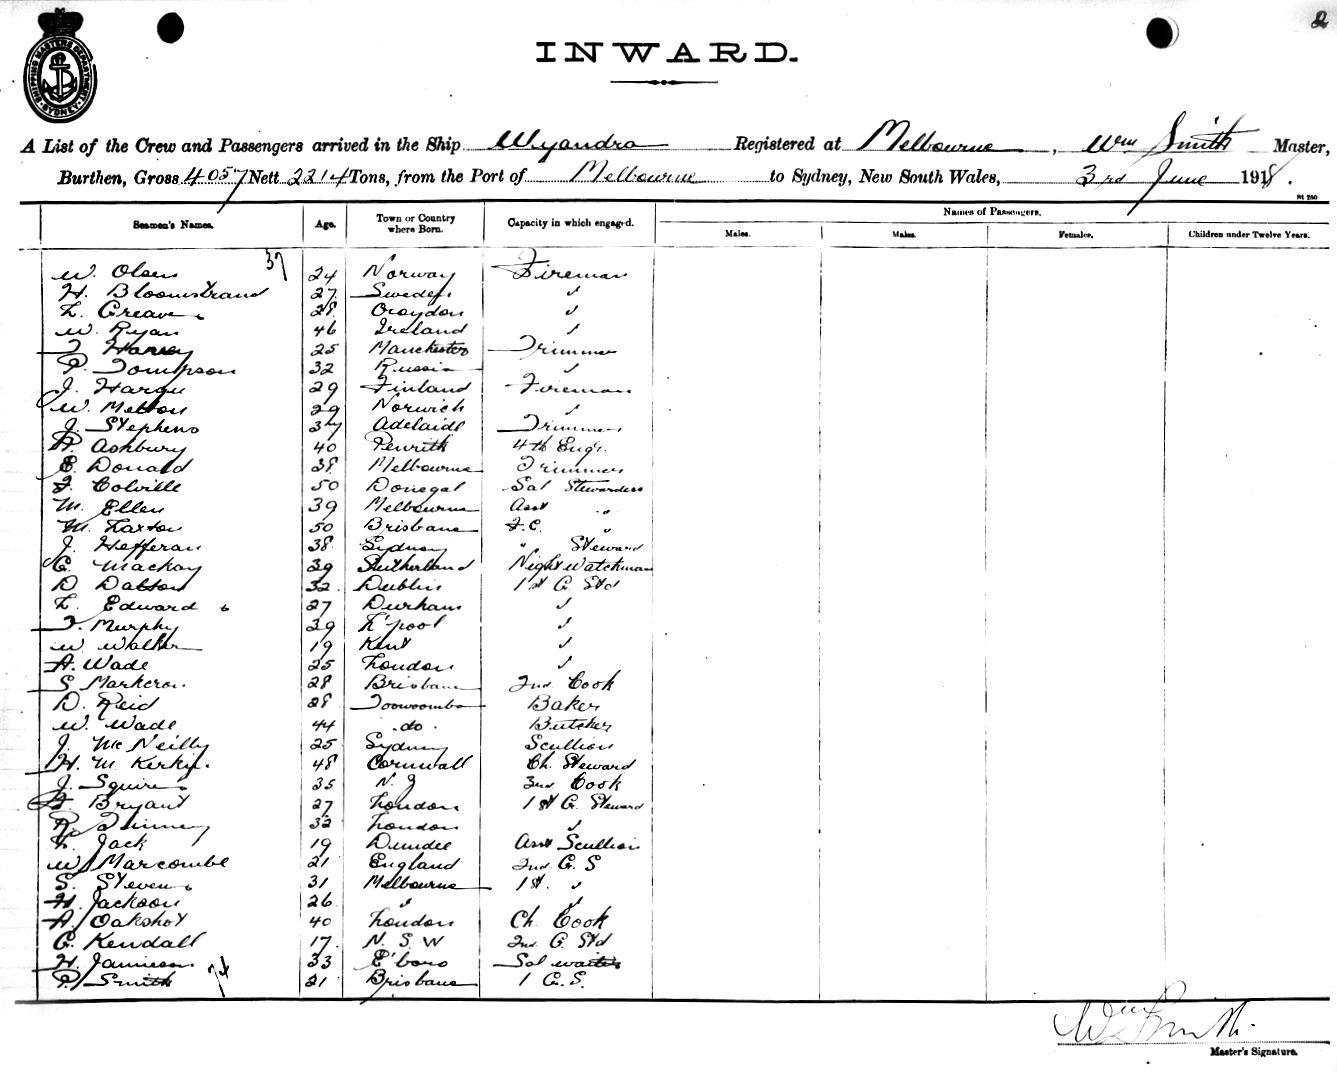 2
SHIPPING MASTERS DEPARTMENT SYDNEY
INWARD.
A List of the Crew and Passengers arrived in the Ship Wyandra Registered at Melbourne, Wm Smith Master,
Burthen, Gross 4057 Nett 2214 Tons, from the Port of Melbourne to Sydney, New South Wales, 3rd June 1918.
St 260
Seamen's Names. Age. Town or Country where Born. Capacity in which engaged. Names of Passengers.
Males. Males. Females. Children under Twelve Years.
37
W. Olsen 24 Norway Fireman
H. Bloomstrand 27 Sweden "
L. Greaves 28 Croydon "
W. Ryan 46 Ireland "
T Harvey 25 Manchester Trimmer
P. Tompson 32 Russia "
J. Hargu 29 Finland Fireman
W. Melton 29 Norwich "
J. Stephens 37 Adelaide Trimmer
A. Ashbury 40 Penrith 4th Engr.
E. Donald 38 Melbourne Trimmer
F. Colville 50 Donegal Sal Stewardess
M. Ellen 39 Melbourne Asst "
M. Laxton 50 Brisbane F.C. "
J. Hefferan 38 Sydney " Steward
C. Mackay 39 Sutherland Night Watchman
D Dalton 32 Dublin 1st G Std
L. Edwards 27 Durham "
T. Murphy 39 L'pool "
W Walker 19 Kent "
A. Wade 25 London "
S Markeron 28 Brisbane 2nd Cook
D. Reid 28 Toowoomba Baker
W. Wade 44 do. Butcher
J. McNeilly 25 Sydney Scullion
H. M. Kerkin 48 Cornwall Ch. Steward
J. Squires 35 N. Z 3rd Cook
G. Bryant 27 London 1st G. Steward
R. Finney 32 London "
L. Jack 19 Dundee Asst Scullion
W Marcombe 21 England 2nd G. S
S. Stevens 31 Melbourne 1st. "
H. Jackson 26 " "
A. Oakshot 40 London Ch. Cook
G. Kendall 17 N. S. W 2nd G. Std
H. Jamieson 33 E'boro Sal waiter
P. Smith 74 21 Brisbane 1 G.S.
Wm Smith.
Master's Signature.